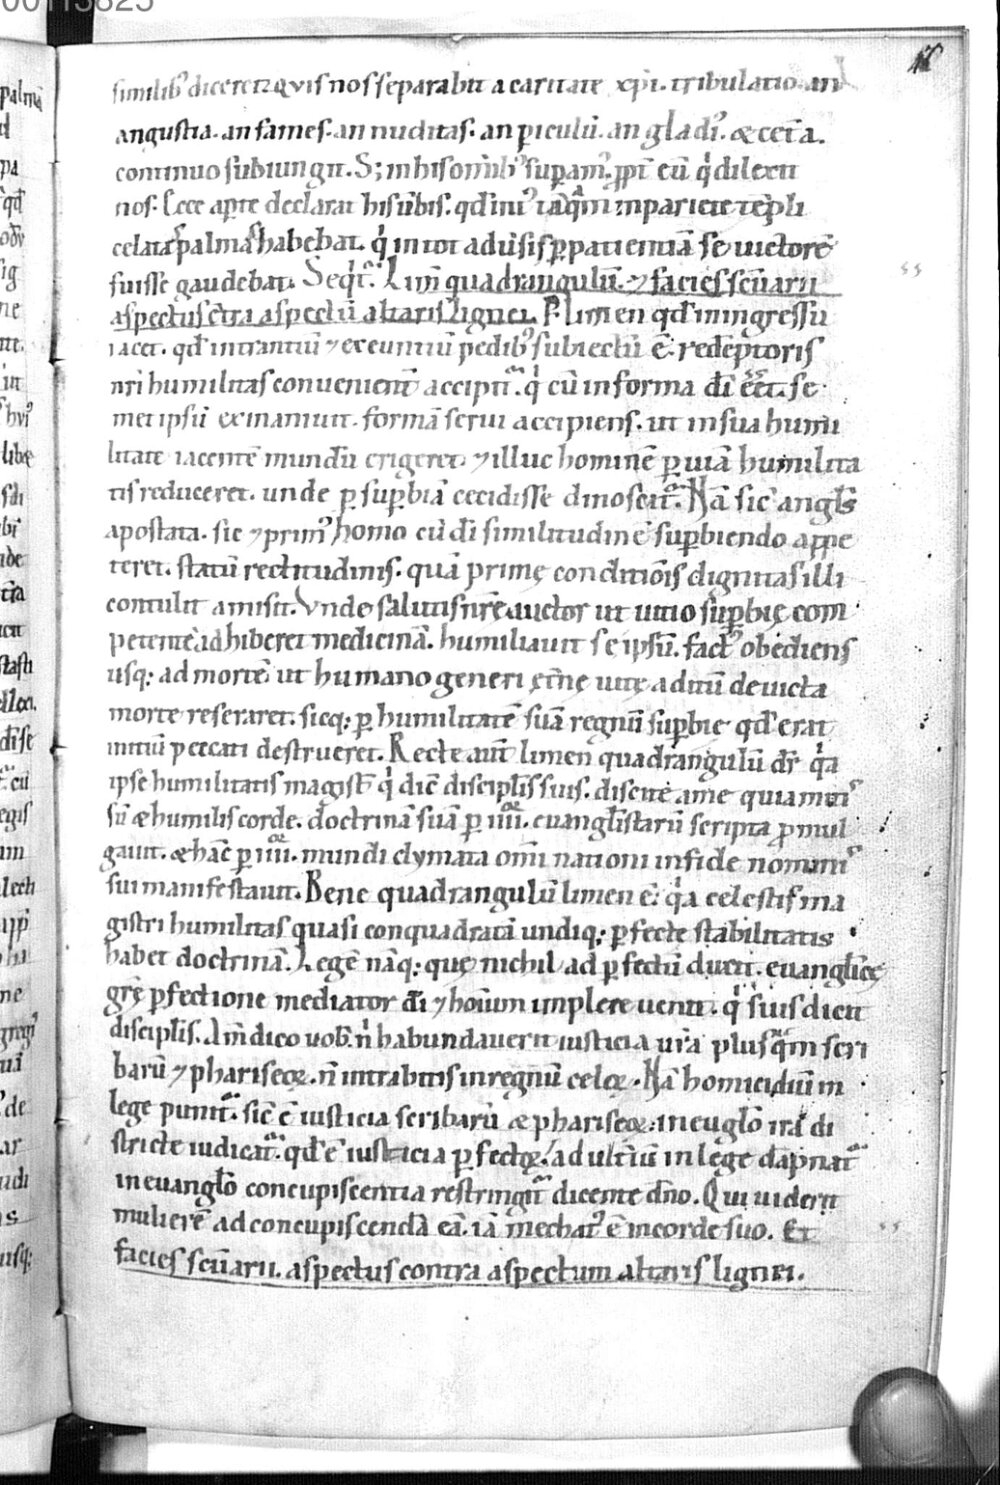 00113825
similib; diceret. Quis nos separabit a caritate xp̄i. tribulatio. an
angustia. an fames. an nuditas. an p̱iculū. an gladi᷒. & ceťa.
continuo subiungit. S; in his om̄ib᷒ sup̱am᷒. ꝓpť eū qͥ dilexit
nos. Ecce ap̱te declarat his ūbis. qđ int᷒ iāqᷓm in pariete tēpli
celata palma habebat. qͥ in tot adūsis p̱ patientiā se uictorē
fuisse gaudebat. Seqͥtᷣ. Lim̄ quadrangulū. ⁊ facies sc̄uarii
aspectus c̄tra aspectū altaris lignei. P̱ limen qđ in ingressu
iacet. qđ intrantiū ⁊ exeuntiū pedib᷒ subiectū ē. redēptoris
nr̄i humilitas conuenient̄ accipitᷣ. qͥ cū in forma dī eēt. se
met ipsū exinaniuit. formā serui accipiens. ut in sua humi
litate iacentē mundū erigeret. ⁊ illuc hominē p̱ uiā humilita
tis reduceret. unde p̱ sup̱biā cecidisse dinosciť. Nā sic̄ angl̄s
apostata. sic ⁊ prim᷒ homo cū dī similitudinē sup̱biendo appe
teret. statū rectitudinis. quā prime ̨ conditiōis dignitas illi
contulit amisit. Vnde salutis nr̄ę auctor ut uitio sup̱bię com
petentē adhiberet medicinā. humiliauit se ipsū. fact᷒ obediens
usq; ad mortē. ut humano generi ęt̄nę uitę aditū deuicta
morte reseraret. sicq; p̱ humilitatē suā regnū sup̱bie qđ erat
initiū peccati destrueret. Recte aut̄ limen quadrangulū dr̄ qͥa
ipse humilitatis magisť qͥ dic̄ discipl̄is suis. discite a me quia miti᷒
sū & humilis corde. doctrinā suā p̱ iiiiᵒʳ. euangl̄istarū scripta ꝓmul
gauit. & hāc p̱ iiiiᵒʳ. mundi clymata om̄i nationi in fide nomini᷒
sui manifestauit. Bene quadrangulū limen ē. qͥa celestis ma
gistri humilitas quasi conquadratā undiq; p̱fecte ̨ stabilitatis
habet doctrinā. Legē nāq; quę nichil ad p̱fectū ducit. euangl̄icę
gr̄ę p̱fectione mediator dī ⁊ hoīum implere uenit. qͥ suis dicit
discipl̄is. Am̄ dico uob̄. n̄ habundauerit iusticia ur̄a plusqᷓm scri
barū ⁊ phariseoꝝ. n̄ intrabitis in regnū celoꝝ. Nā homicidiū in
lege punitᷣ. sic̄ ē iusticia scribarū & phariseoꝝ. in euḡlo ira di
stricte iudicatᷣ. qđ ē iusticia p̱fectoꝝ. adult̄iū in lege dāpnatᷣ
in euangl̄o concupiscentia restringitᷣ dicente dn̄o. Qui uiderit
mulierē ad concupiscendā eā. iā mechat᷒ ē in corde suo. Et
facies sc̄uarii. aspectus contra aspectum altaris lignei.